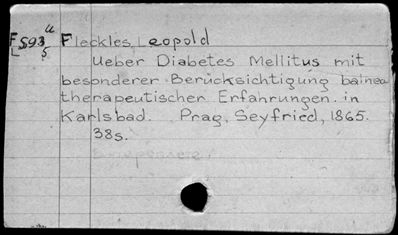 F593u Fleckles, Leopold
L 5
Ueber Diabetes Mellitus mit
besonderer Berücksichtigung balneo
therapeutischer Erfahrungen in
Karlsbad. Prag, Seyfried, 1865.
38s.